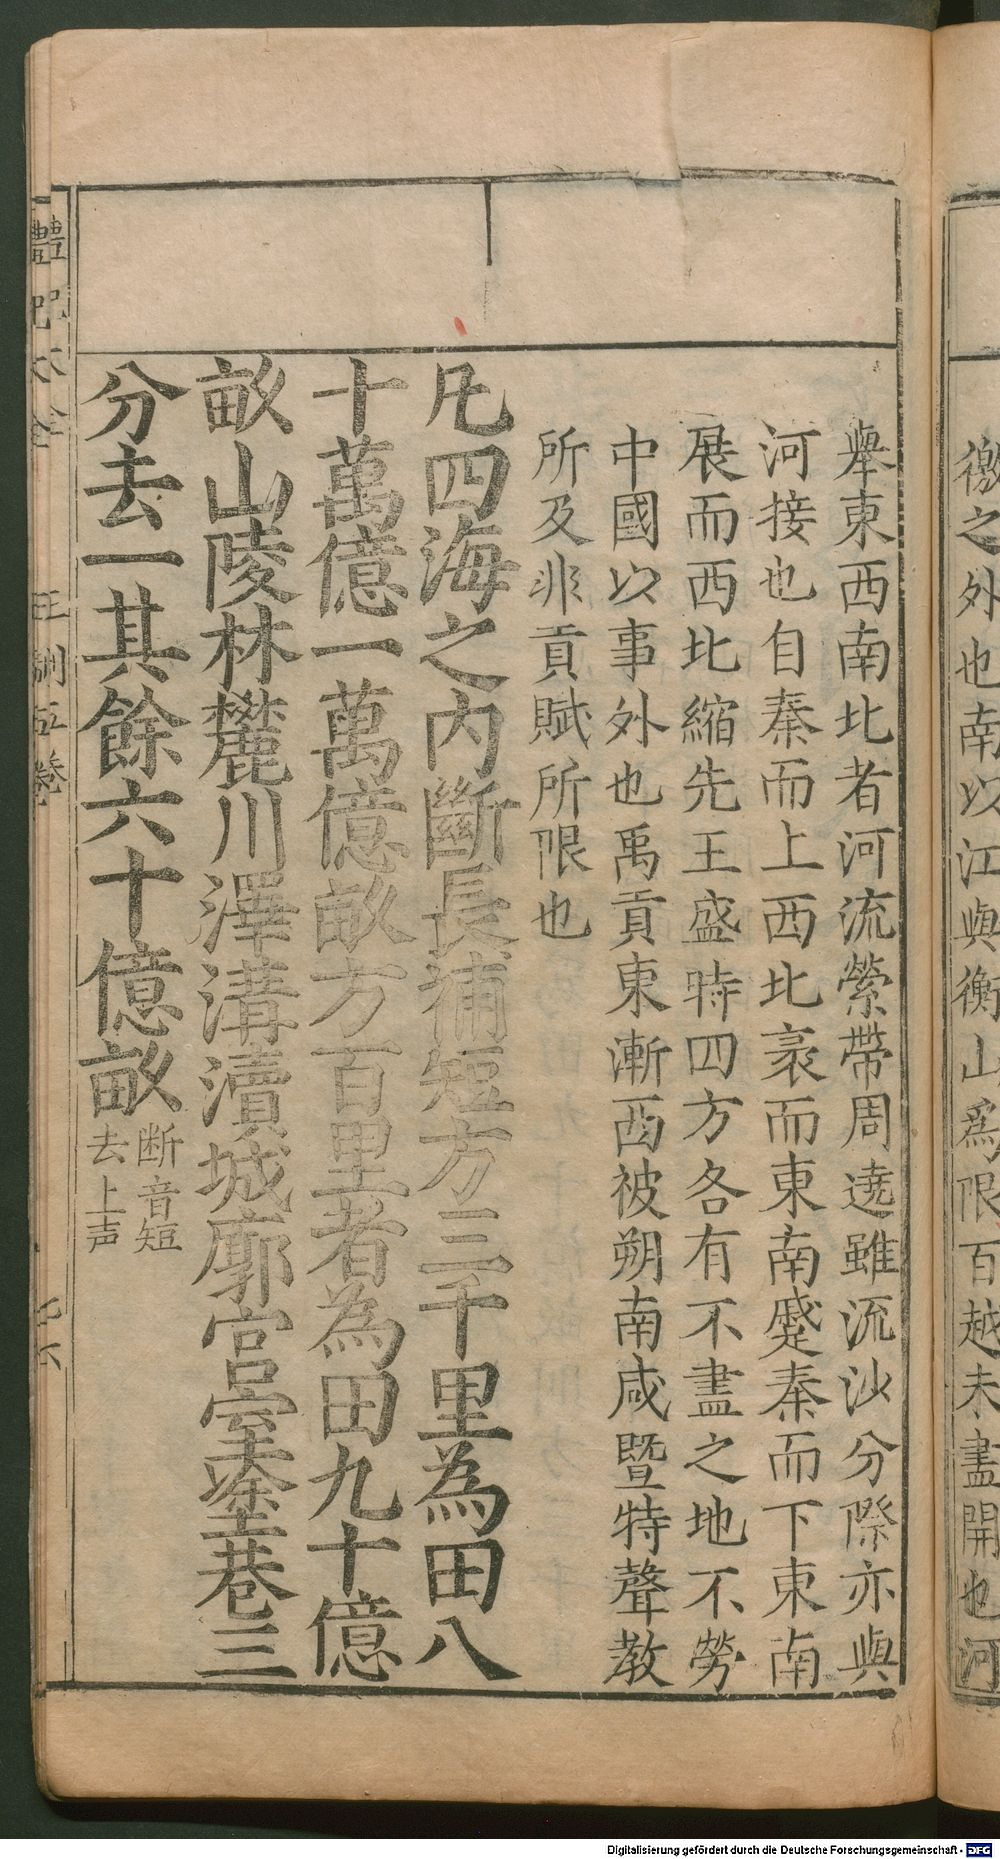 徼之外也南以江與衡山爲限百越未盡開也河
舉東西南北者河流縈帶周遶雖流沙分際亦與
河接也自秦而上西北袤而東南蹙秦而下東南
展而西北縮先王盛時四方各有不盡之地不勞
中國以事外也禹貢東漸西被朔南咸暨特聲教
所及非貢賦所限也
凡四海之内斷長補短方三千里為田八
十萬億一萬億畝方百里者為田九十億
畝山陵林麓川澤溝瀆城廓宫室塗巷三
分去一其餘六十億畝
断音短
去上声
禮記大全 王制五卷 七六
Digitalisierung gefördert durch die Deutsche Forschungsgemeinschaft - DFG